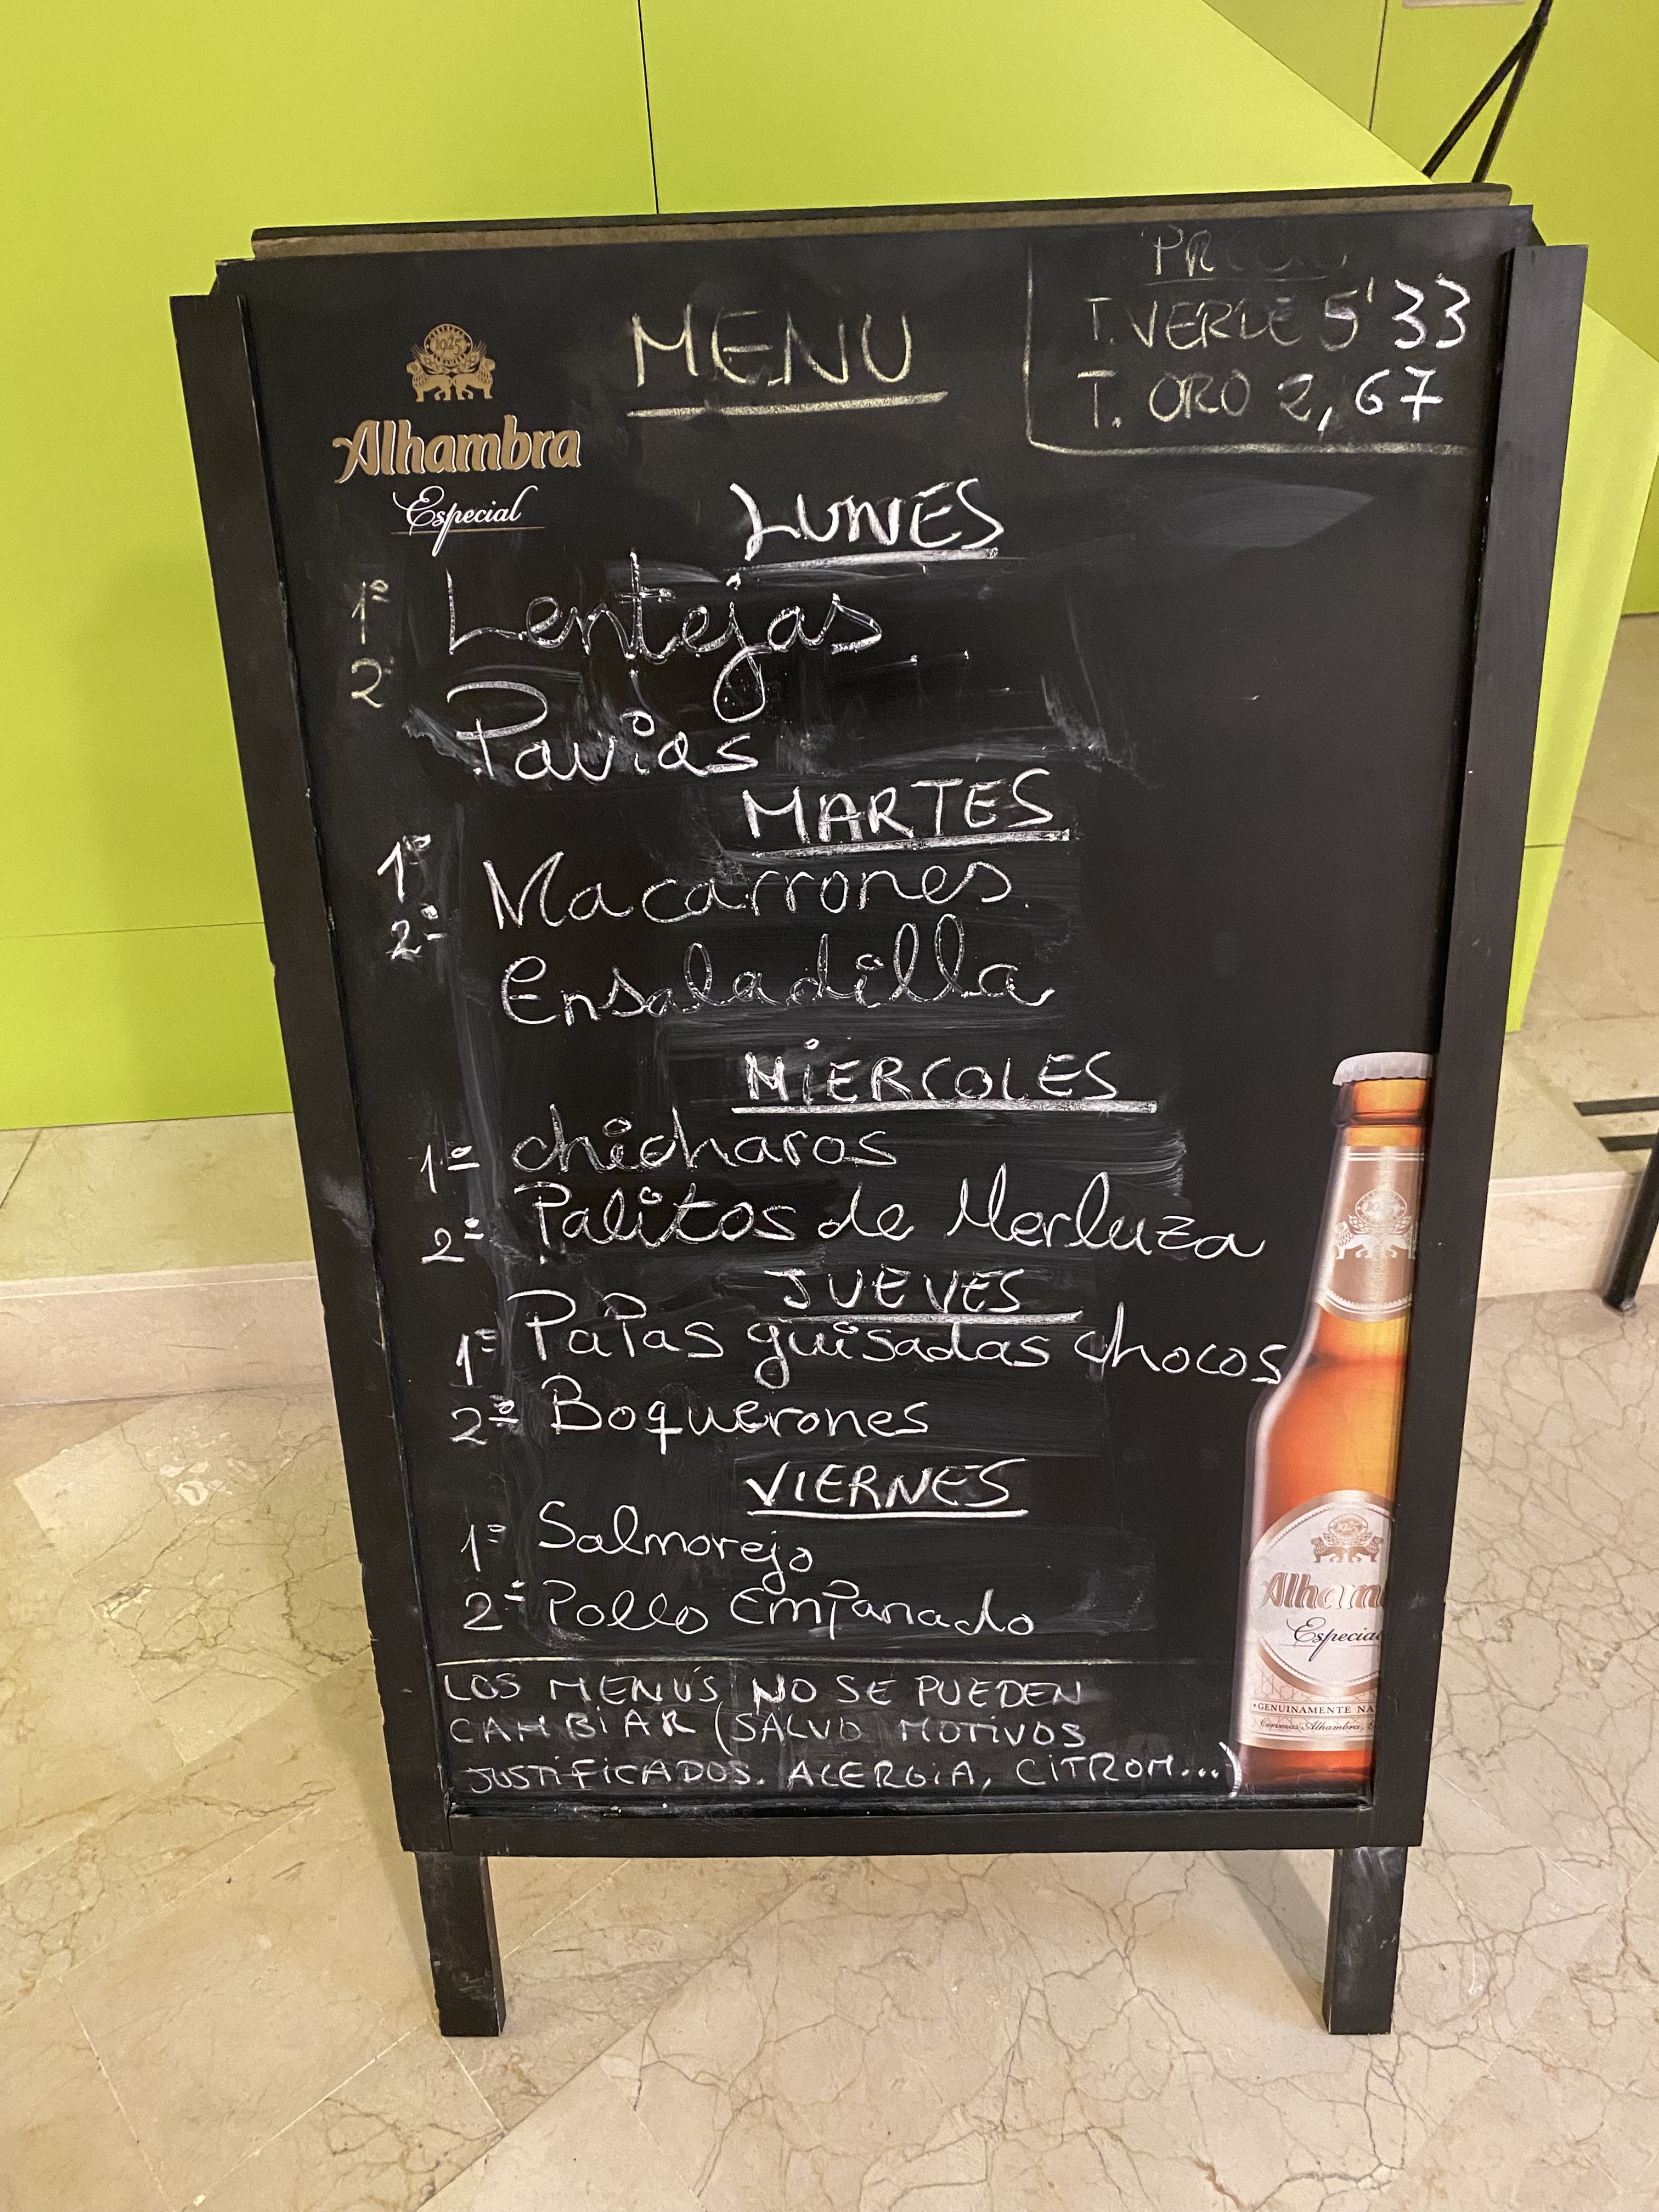 1925
Alhambra
Especial
MENU
T. VERDE 5'33
T. ORO 2,67
LUNES
1º Lentejas
2 Pavias
MARTES
1º Macarrones
2º Ensaladilla
MiERCOLES
1º chicharos
2º Palitos de Merluza
JUEVES
1º Papas guisadas chocos
2º Boquerones
VIERNES
1º Salmorejo
2º Pollo Empanado
LOS MENÚS NO SE PUEDEN
CAMBiAR (SALVO MOTiVOS
JUSTiFiCADOS. ALERGiA, CiTROM...)
1925
Alham
Especial
·GENUINAMENTE NA
Cervezas Alhambra,